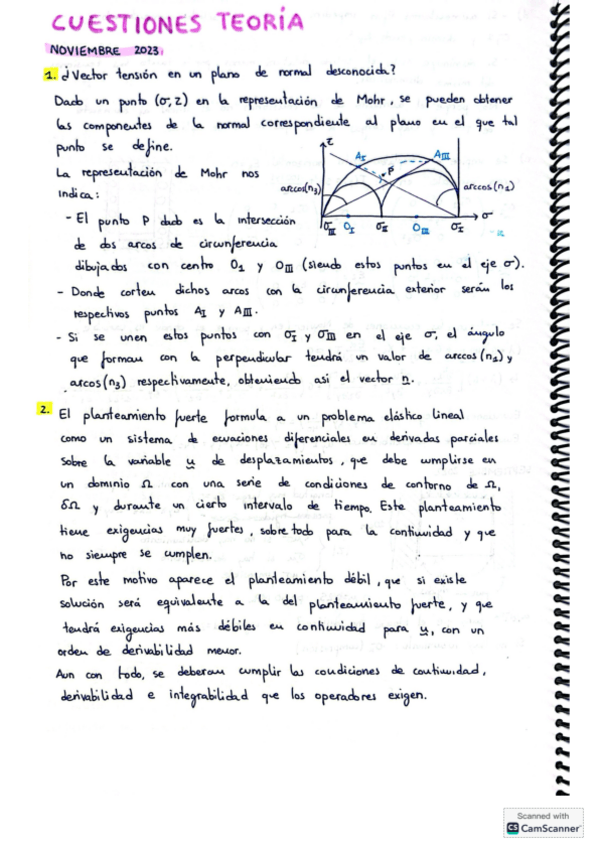 CUESTIONES TEORÍA
NOVIEMBRE 2023
1. ¿Vector tensión en un plano de normal desconocida?
Dado un punto (σ,τ) en la representación de Mohr, se pueden obtener
las componentes de la normal correspondiente al plano en el que tal
punto se define.
La representación de Mohr nos
indica:
- El punto P dado es la intersección
de dos arcos de circunferencia
dibujados con centro O1 y OIII (siendo estos puntos en el eje σ).
τ
AI
AIII
P
arccos(n3)
arccos(n1)
σIII OI σII OIII σI
σ
- Donde corten dichos arcos con la circunferencia exterior serán los
respectivos puntos AI y AIII.
- Si se unen estos puntos con σI y σIII en el eje σ, el ángulo
que forman con la perpendicular tendrá un valor de arccos(n1) y
arcos(n3) respectivamente, obteniendo así el vector n.
2. El planteamiento fuerte formula a un problema elástico lineal
como un sistema de ecuaciones diferenciales en derivadas parciales
sobre la variable u de desplazamientos, que debe cumplirse en
un dominio Ω con una serie de condiciones de contorno de Ω,
δΩ y durante un cierto intervalo de tiempo. Este planteamiento
tiene exigencias muy fuertes, sobre todo para la continuidad y que
no siempre se cumplen.
Por este motivo aparece el planteamiento débil, que si existe
solución será equivalente a la del planteamiento fuerte, y que
tendrá exigencias más débiles en continuidad para u, con un
orden de derivabilidad menor.
Aun con todo, se deberan cumplir las condiciones de continuidad,
derivabilidad e integrabilidad que los operadores exigen.
Scanned with
CS CamScanner